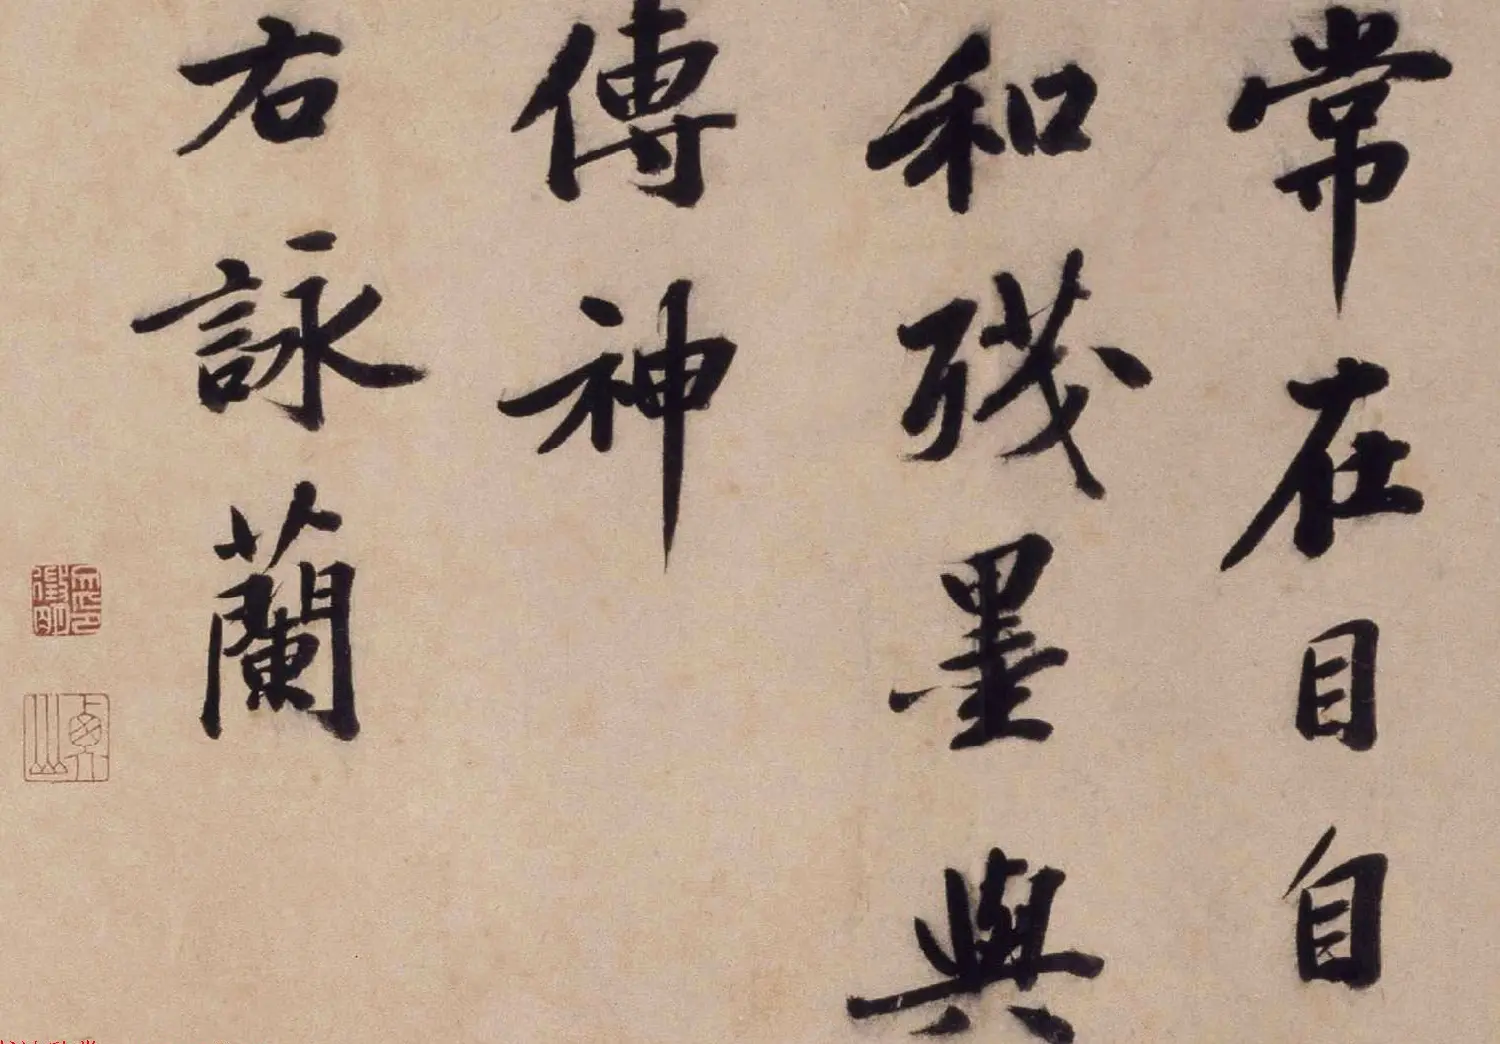 常在目自
和殘墨與
傳神
右詠蘭
徵明